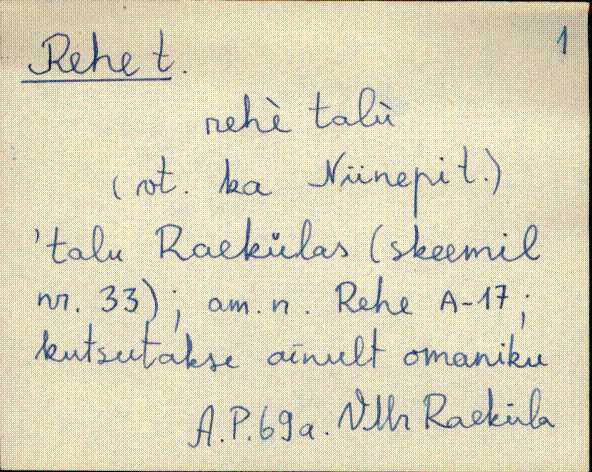 1
Rehe t.
rehè talù
(vt. ka Niinepi t.)
'talu Raekülas (skeemil
nr. 33); am. n. Rehe A-17;
kutsutakse ainult omaniku
A.P. 69a. VMr Raeküla